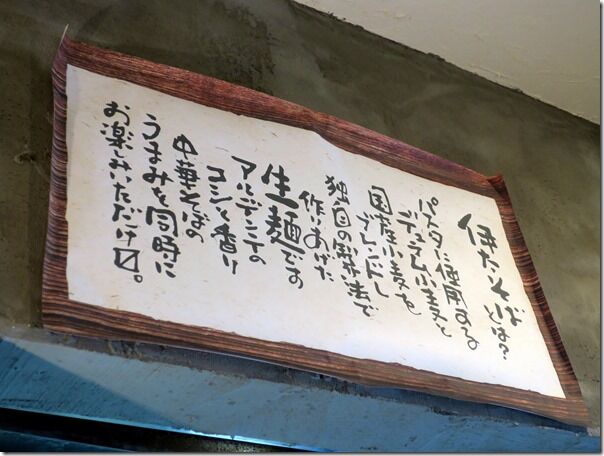 伊太そば
とは?
パスタに使用する
デュラム小麦と
国産小麦を
ブレンドし
独自の製法で
作りあげた
生麺です
アルデンテの
コシと香り
中華そばの
うまみを同時に
お楽しみいただけ〼。